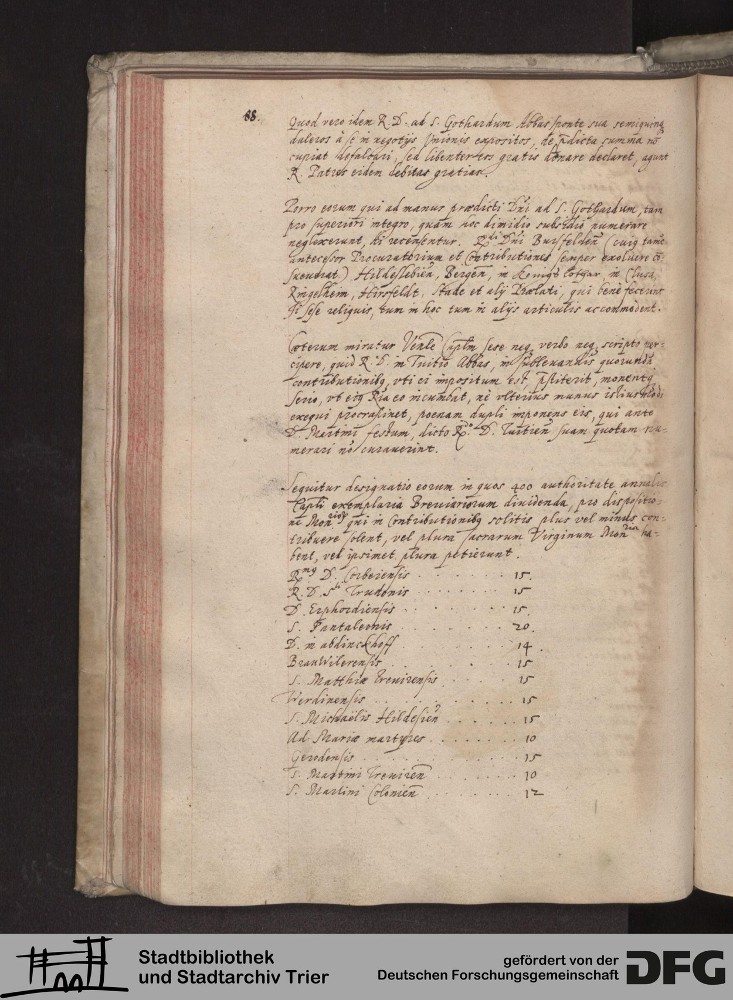 88.
Quod vero idem R. D. ad S. Gothardum Abbas sponte sua semiquing
daleros à se in negotijs Unionis expositos, de pdicta summa nō
cupiat defalcari, sed libenter eos gratis donare declaret, agunt
R. Patres eidem debitas gratias.
Porro eorum qui ad manus praedicti Dni ad S. Gothardum, tam
pro superiori integro, quàm hoc dimidio subsidio numerare
neglexerunt, hi recensentur. Dni Bursfelden (cuiq
antecessor Procuratorum et Contributiones semper exolvere cō
sueverat) Hildeslebien, Bergen, in Konigs lothar, in Clusa,
Ringelheim, Hirsfeldt, Stade et alij Praelati, qui bene fecerint
si sese reliquis, tum in hoc tum in alijs articulis accommodent.
Caeterum miratur Vēnle Captm sese neq verbo neq scripto per-
cipere, quid R. D. in Tuitio Abbas, in sublevandis quorundā
contributionibq, uti ei impositum est, pstiterit, monentq
serio, vt eiq Ria eo incumbat, ne ulterius munus istiusmodi
exequi procrastinet, poenam dupli imponens eis, qui ante
D. Martini festum, dicto D. Tuitien suam quotam nu-
merari nō curaverint.
Sequitur designatio eorum in quos 400 authoritate annalis
Capli exemplaria Breviariorum dividenda, pro dispositio-
ne Mon qui in Contributionibq solitis plus vel minus con-
tribuere solent, vel plura sacrarum Virginum Mon ha-
bent, vel ipsimet plura petierunt.
Rmq D. Corbeiensis . . . . . . 15.
R. D. Sti Trudonis . . . . . . 15
D. Erphordiensis . . . . . . 15.
S. Pantaleonis . . . . . . 20.
D. in abdinckhoff . . . . . . 14.
Brauwilerensis . . . . . . 15
S. Matthiae Trevirensis . . . . . . 15
Werdinensis . . . . . . 15
S. Michaëlis Hildesien . . . . . . 15
Ad Mariae martyres . . . . . . 10
Gerodensis . . . . . . 15
S. Martini Treviren . . . . . . 10
S. Martini Colonien . . . . . . 12
Stadtbibliothek
und Stadtarchiv Trier
gefördert von der
Deutschen Forschungsgemeinschaft
DFG